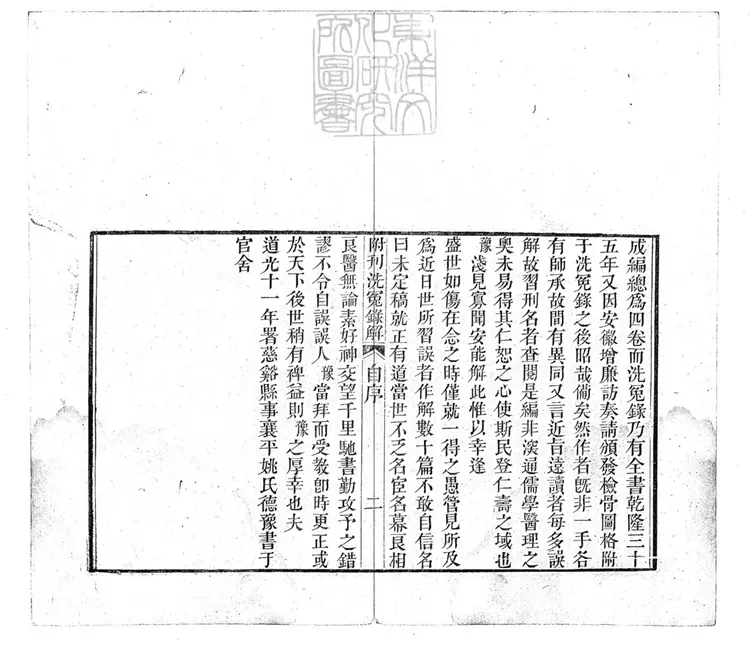 東洋文
化研究
所圖書
成編總爲四卷而洗冤錄乃有全書乾隆三十
五年又因安徽增廉訪奏請頒發檢骨圖格附
于洗冤錄之後昭哉備矣然作者旣非一手各
有師承故間有異同又言近旨遠讀者每多誤
解故習刑名者查閱是編非深通儒學醫理之
奧未易得其仁恕之心使斯民登仁壽之域也
豫淺見寡聞安能解此惟以幸逢
盛世如傷在念之時僅就一得之愚管見所及
爲近日世所習誤者作解數十篇不敢自信名
曰未定稿就正有道當世不乏名宦名幕良相
附刊洗冤錄解 自序 二
良醫無論素好神交望千里馳書勤攻予之錯
謬不令自誤誤人豫當拜而受敎卽時更正或
於天下後世稍有裨益則豫之厚幸也夫
道光十一年署慈谿縣事襄平姚氏德豫書于
官舍